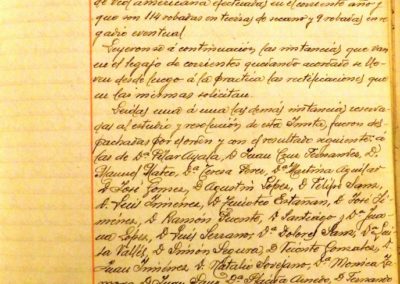 de vid americana efectuadas en el corriente año y
que son 114 robadas en tierras de secano y 9 robadas en re
gadío eventual
Leyeronse á continuacion las instancias que van
en el legajo de corrientes quedando acordado se lle
ven desde luego á la practica las rectificaciones que
en las mismas solicitan.
Leidas una á una las demás instancias reserva-
das al estudio y resolución de esta Junta, fueron des-
pachadas por orden y con el resultado siguiente: á
las de Dª Pilar Ayala, D. Juan Cruz Fernandez, D.
Manuel Mateo, Dª Teresa Perez, Dª Martina Aguilar
D. José Gomez, D. Agustin Lopez, D. Felipe Sanz,
D. Luis Jimenez, D. Estañan, D. José Ji-
ménez, D. Ramón Puente, D. Santiago y Dª Jua
na Lopez, D. Luis Serrano, Dª Dolores Sanz, Dª
la Vallés, D. Simón Segura, D. Vicente Gonzalez, D.
Juan Jimenez, D. Natalio Dª Monica
D. Juan Dª D. Fernando